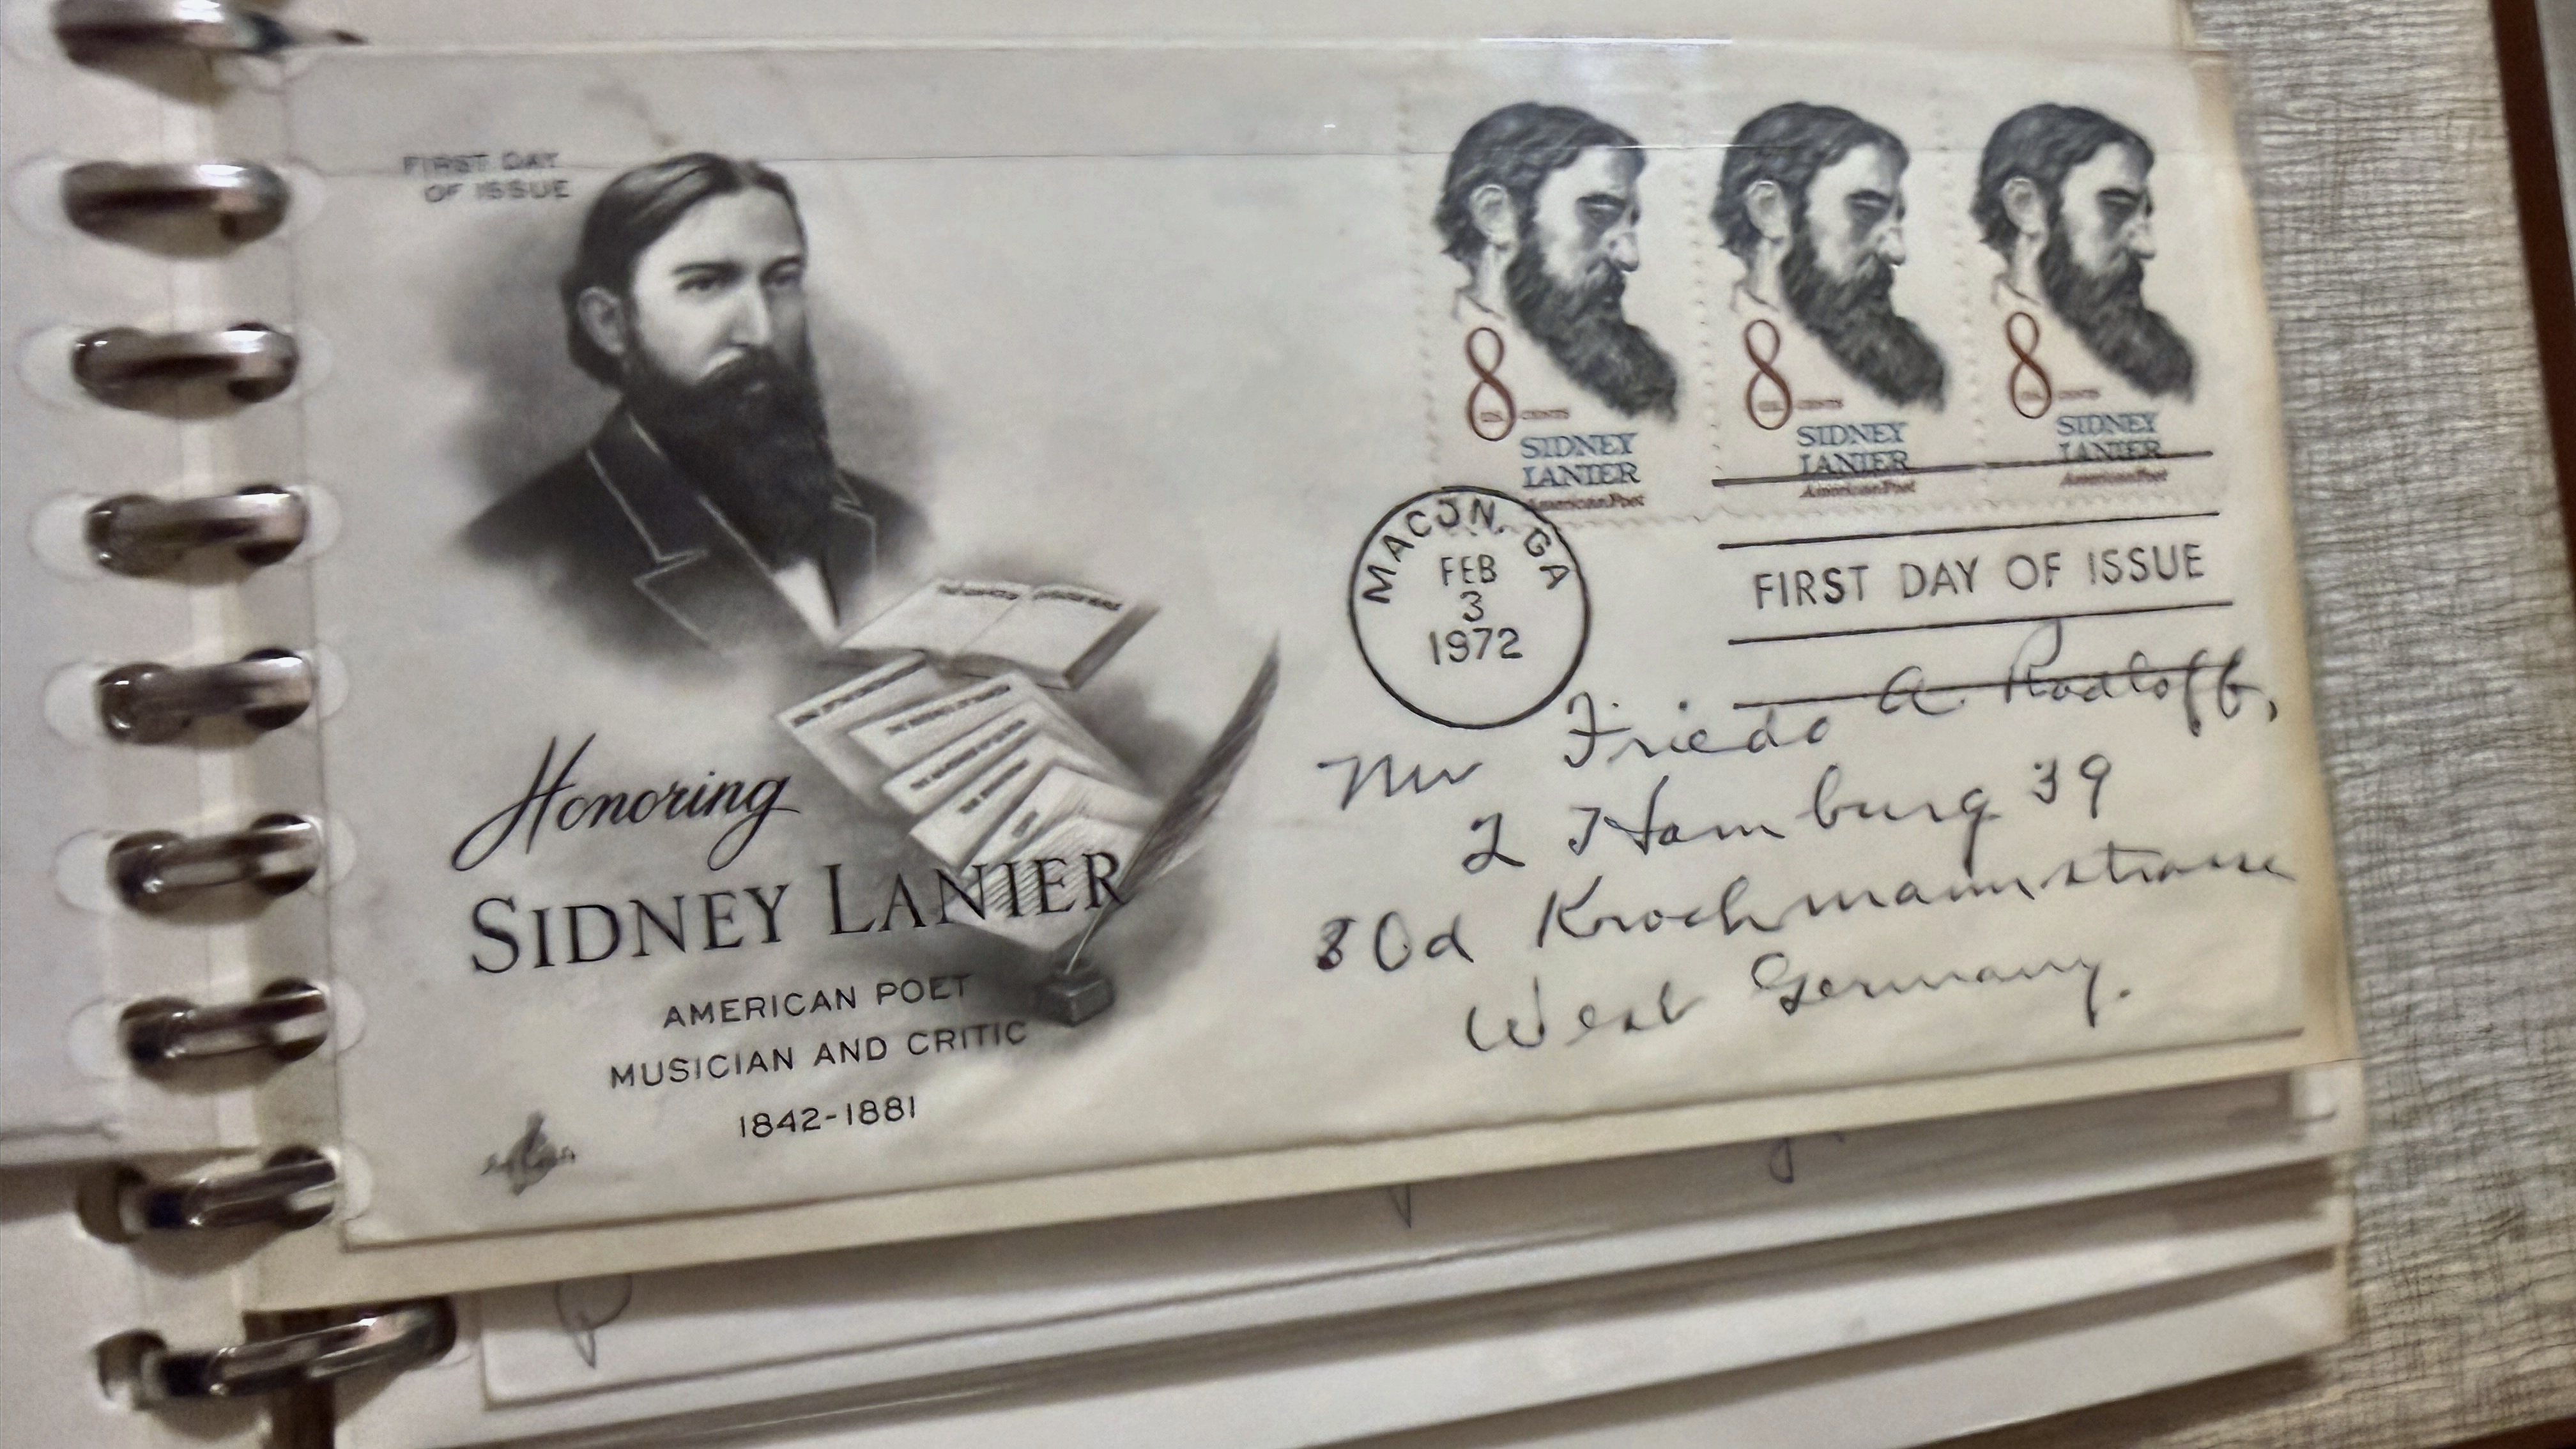 FIRST DAY
OF ISSUE
8
U.S. CENTS
SIDNEY
LANIER
American Poet
8
U.S. CENTS
SIDNEY
LANIER
American Poet
8
U.S. CENTS
SIDNEY
LANIER
American Poet
MACON, GA
FEB
3
1972
FIRST DAY OF ISSUE
Mr Friedo A. Radloff,
2 Hamburg 39
80d Krochmannstrasse
West Germany.
Honoring
SIDNEY LANIER
AMERICAN POET
MUSICIAN AND CRITIC
1842-1881